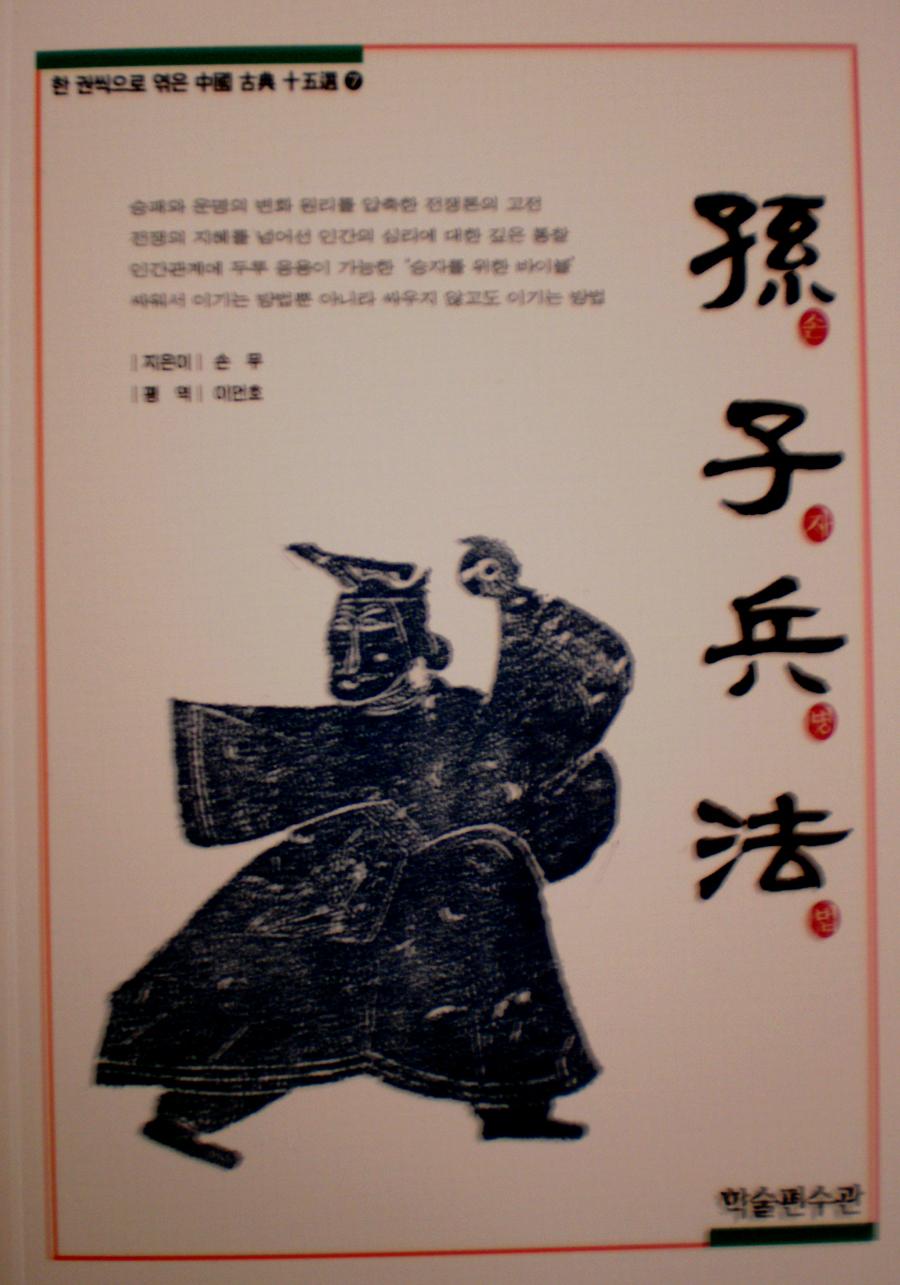 한 권씩으로 엮은 中國 古典 十五選 ❼
승패와 운명의 변화 원리를 압축한 전쟁론의 고전
전쟁의 지혜를 넘어선 인간의 심리에 대한 깊은 통찰
인간관계에 두루 응용이 가능한 '승자를 위한 바이블'
싸워서 이기는 방법뿐 아니라 싸우지 않고도 이기는 방법
| 지은이 | 손 무
| 평 역 | 이언호
孫
손
子
자
兵
병
法
법
학술편수관